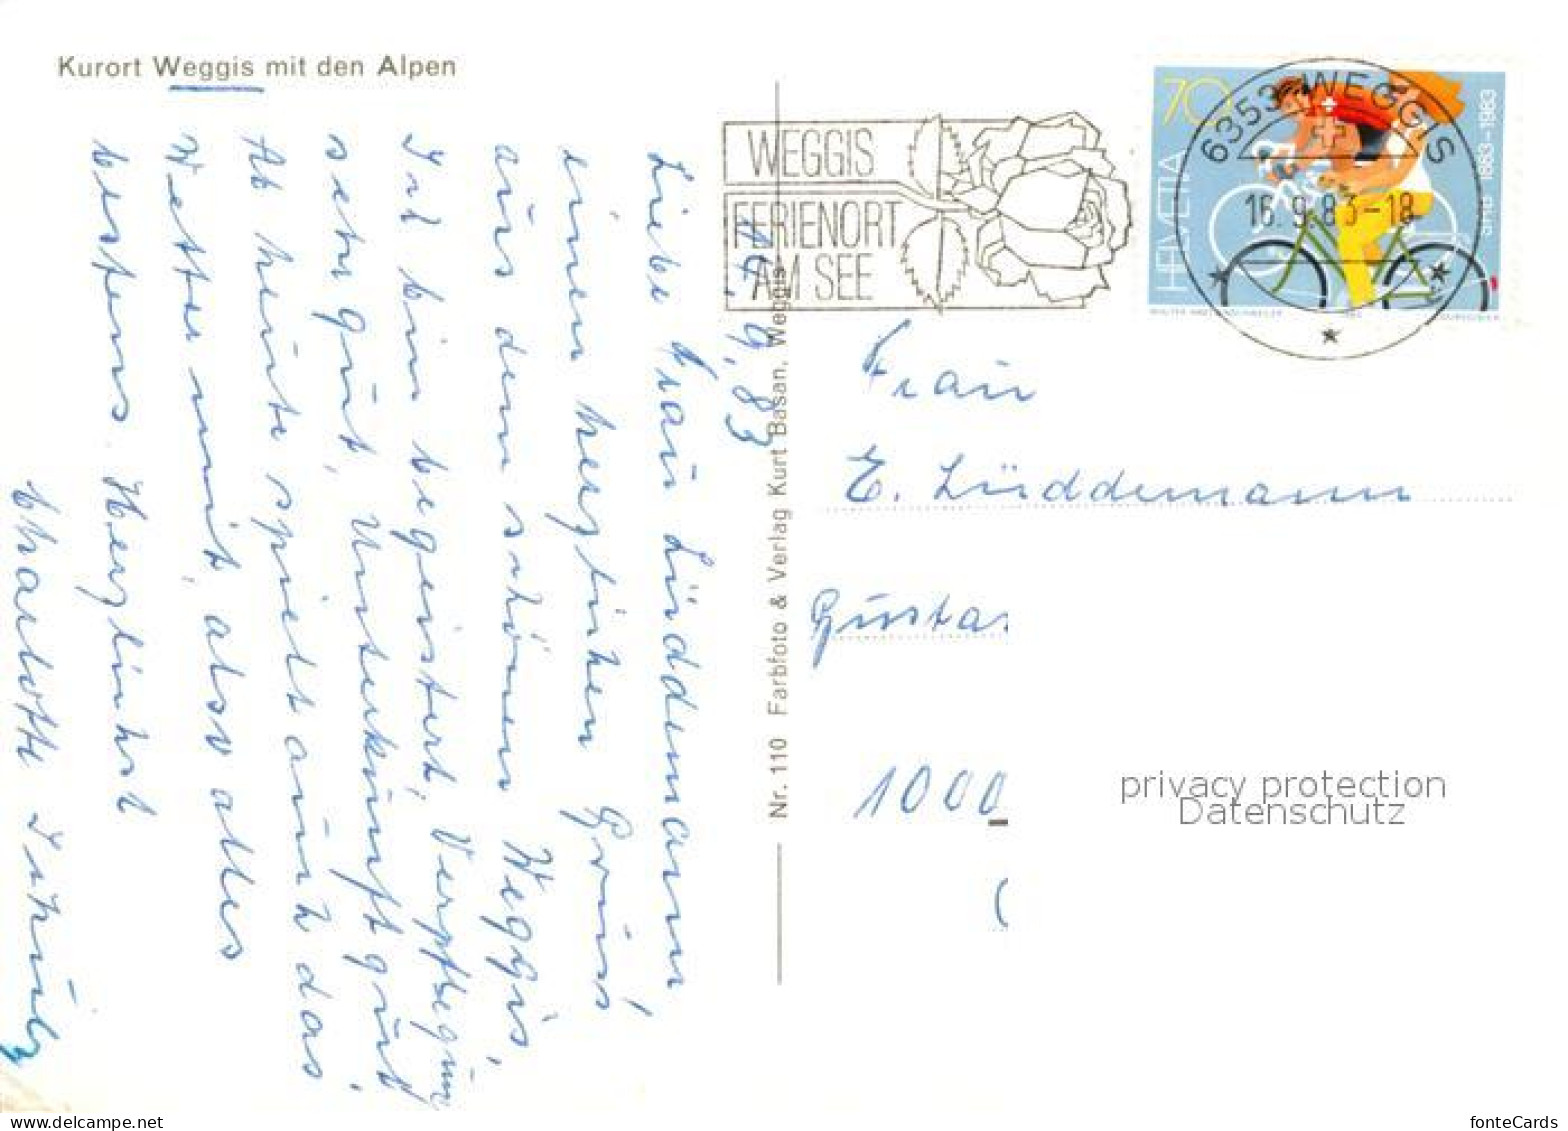 Kurort Weggis mit den Alpen
17. 9. 83
Liebe Frau Lüddemann,
einen herzlichen Gruss
aus dem schönen Weggis,
Ich bin begeistert, Verpflegung
sehr gut, Unterkunft gut
Ab heute spielt auch das
Wetter mit, also alles
bestens. Herzlichst
Charlotte Schulz
Nr. 110 Farbfoto & Verlag Kurt Basan, Weggis
WEGGIS
FERIENORT
AM SEE
70
HELVETIA
SRB 1883-1983
6353 WEGGIS
16.9.83-18
Frau
E. Lüddemann
Gustav
1000
privacy protection
Datenschutz
www.delcampe.net
fonteCards